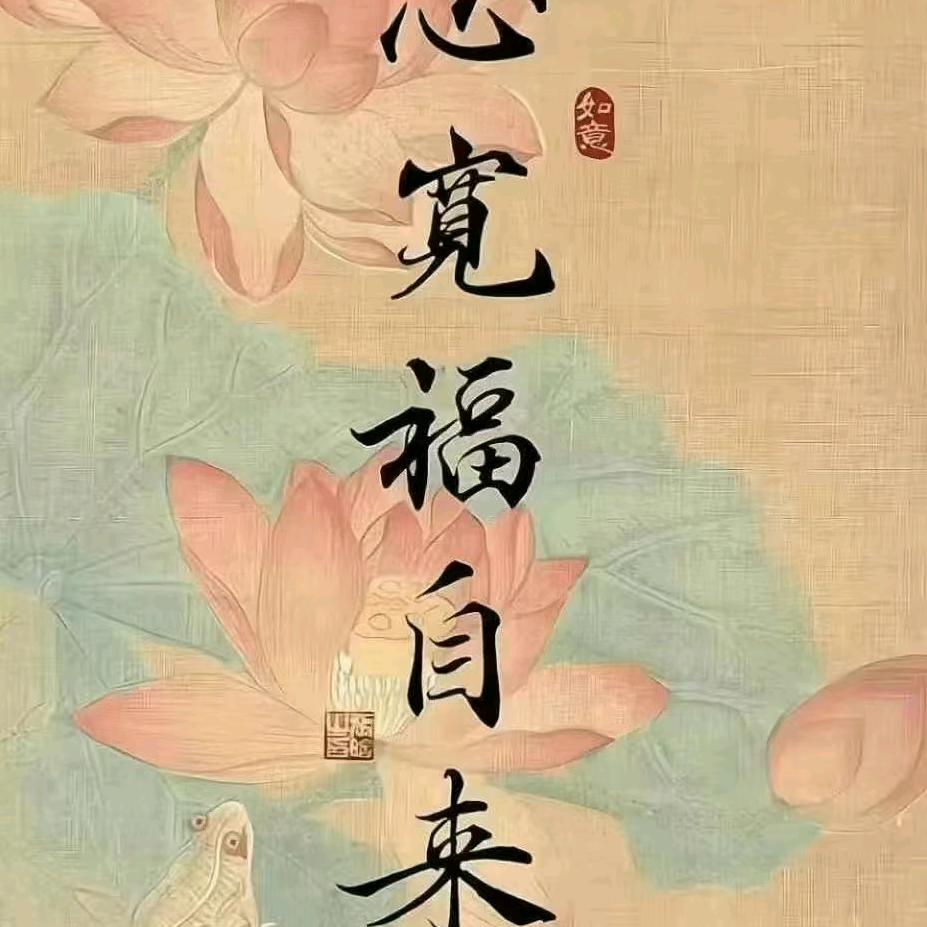 如意
心寬福自来